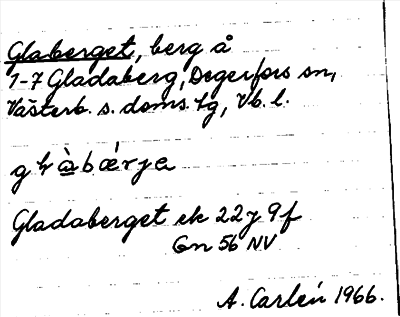 Glaberget, berg å
1-7 Gladaberg, Degerfors sn,
Västerb. s. doms. tg, Vb. l.
g ł à b æ r j e
Gladaberget ek 22 J 9 f
Gn 56 NV
A. Carlén 1966.